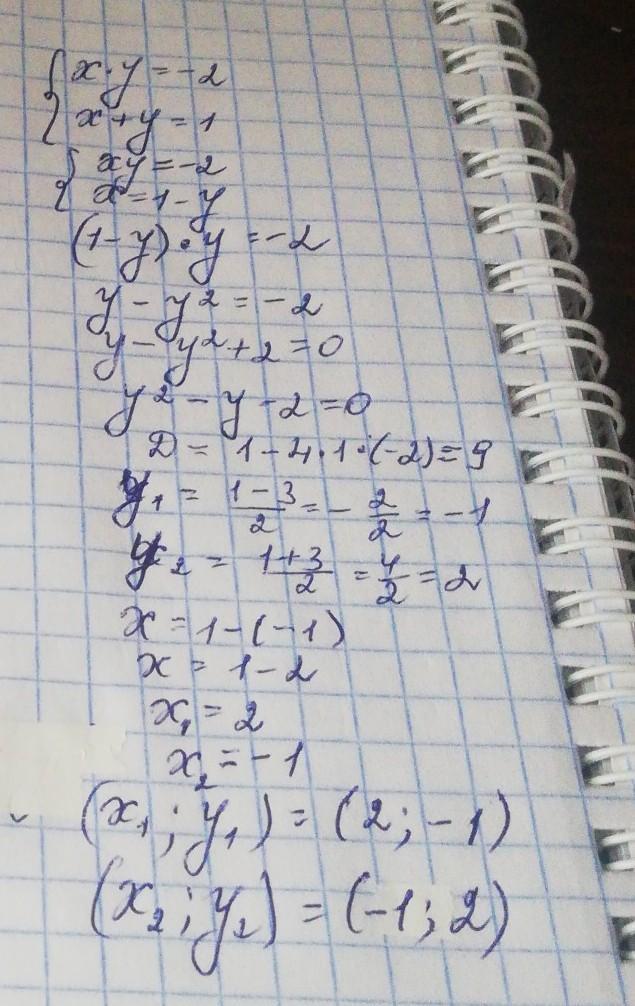 { x·y = -2
x+y = 1
{ xy = -2
x = 1-y
(1-y)·y = -2
y - y² = -2
y - y² + 2 = 0
y² - y - 2 = 0
D = 1-4·1·(-2) = 9
y₁ = (1-3)/2 = - 2/2 = -1
y₂ = (1+3)/2 = 4/2 = 2
x = 1-(-1)
x = 1-2
x₁ = 2
x₂ = -1
(x₁; y₁) = (2; -1)
(x₂; y₂) = (-1; 2)